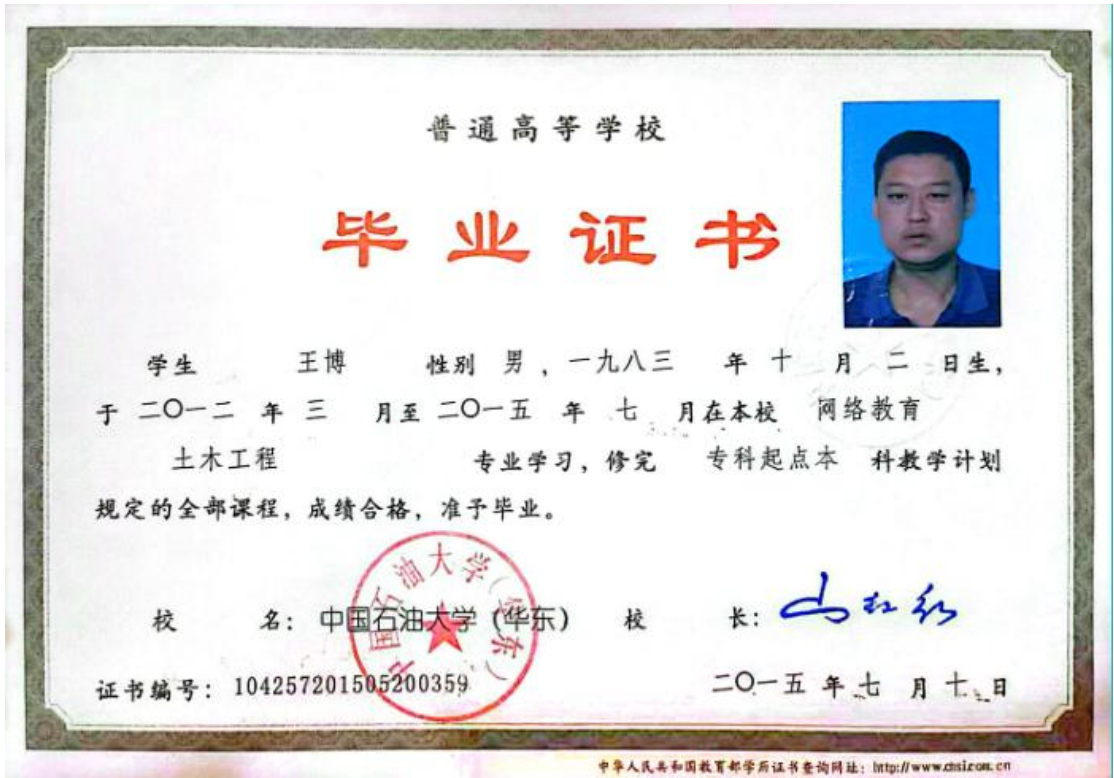 普通高等学校
毕业证书
学生 王博 性别 男，一九八三 年 十 月 二 日生，
于 二〇一二 年 三 月至 二〇一五 年 七 月在本校 网络教育
土木工程 专业学习，修完 专科起点本 科教学计划
规定的全部课程，成绩合格，准予毕业。
中国石油大学(华东)
校 名：中国石油大学（华东） 校 长：
证书编号：104257201505200359 二〇一五 年 七 月 十 日
中华人民共和国教育部学历证书查询网址：http://www.chsi.com.cn